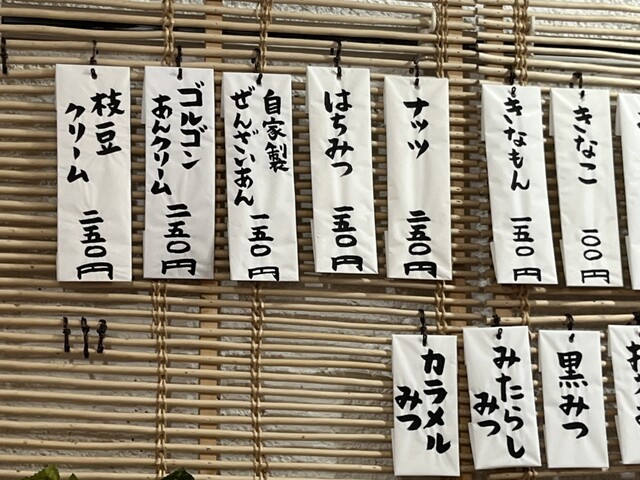 きなこ
一〇〇円
きなもん
一五〇円
ナッツ
二五〇円
はちみつ
一五〇円
自家製
ぜんざいあん
一五〇円
ゴルゴン
あんクリーム
二五〇円
枝豆
クリーム
二五〇円
黒みつ
みたらし
みつ
カラメル
みつ